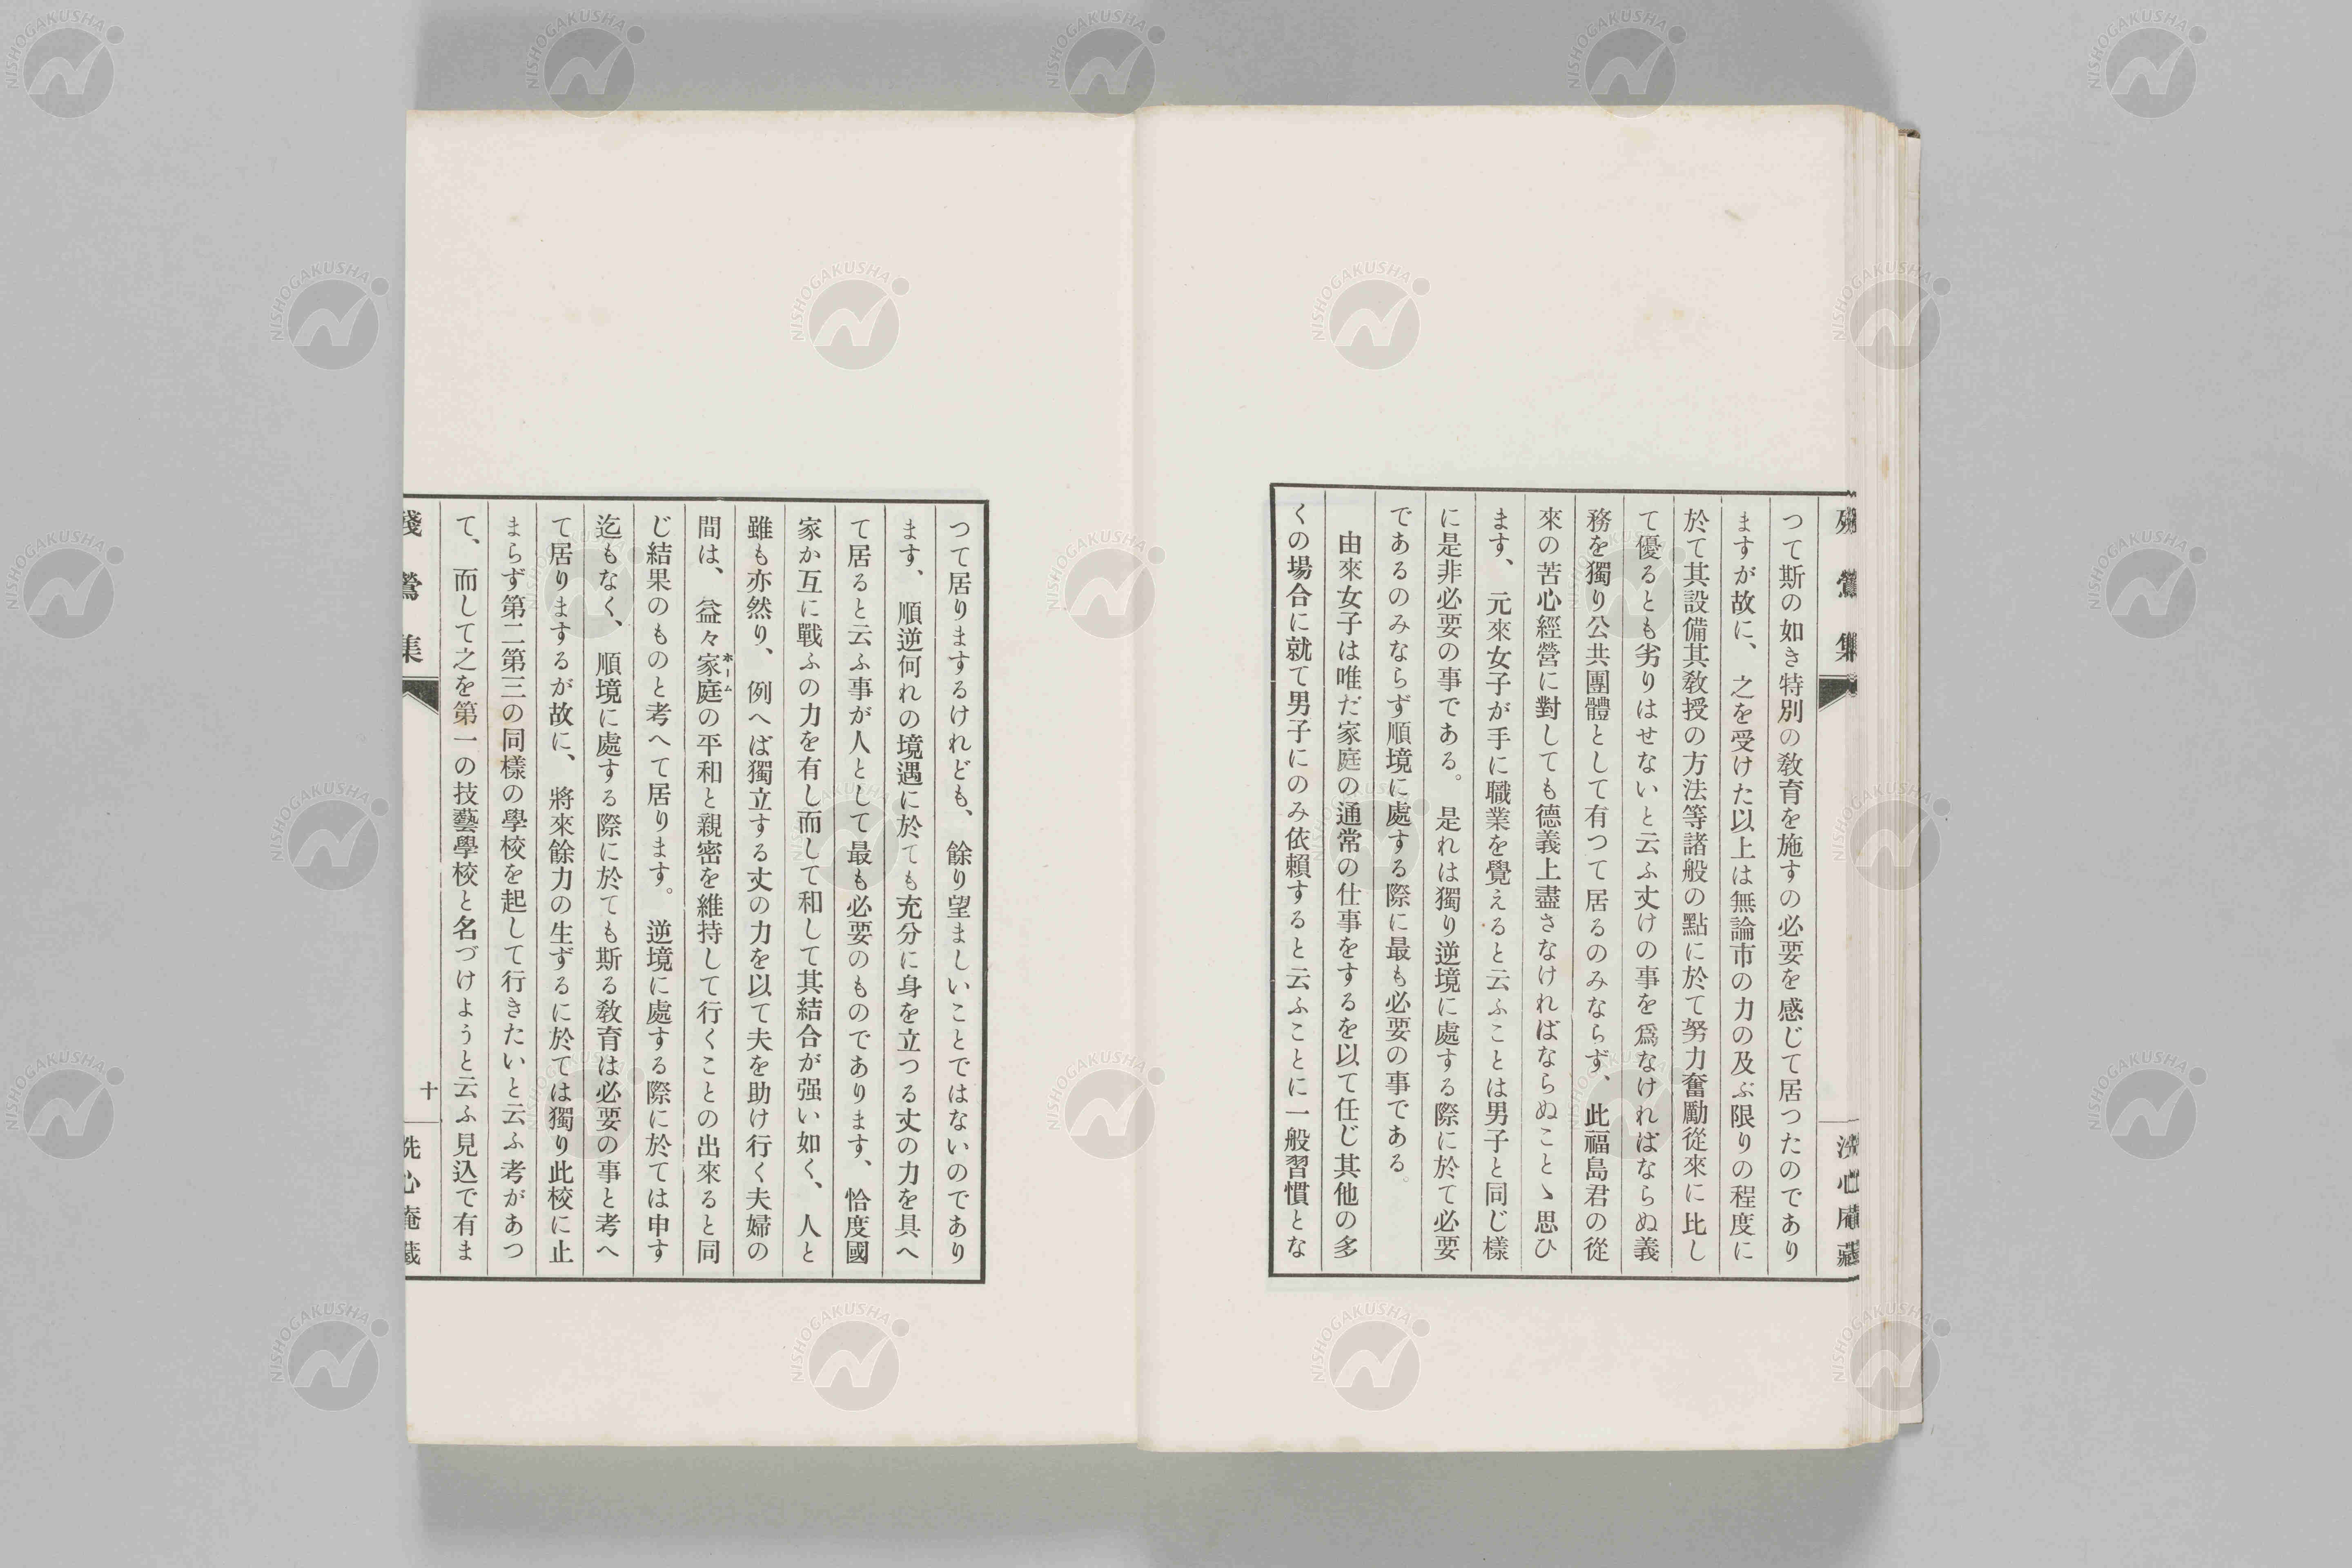 殘鶯集
洗心庵藏
つて斯の如き特別の敎育を施すの必要を感じて居つたのであり
ますが故に、之を受けた以上は無論市の力の及ぶ限りの程度に
於て其設備其敎授の方法等諸般の點に於て努力奮勵從來に比し
て優るとも劣りはせないと云ふ丈けの事を爲なければならぬ義
務を獨り公共團體として有つて居るのみならず、此福島君の從
來の苦心經營に對しても德義上盡さなければならぬことゝ思ひ
ます、元來女子が手に職業を覺えると云ふことは男子と同じ樣
に是非必要の事である。是れは獨り逆境に處する際に於て必要
であるのみならず順境に處する際に最も必要の事である。
由來女子は唯だ家庭の通常の仕事をするを以て任じ其他の多
くの場合に就て男子にのみ依賴すると云ふことに一般習慣とな
つて居りまするけれども、餘り望ましいことではないのであり
ます、順逆何れの境遇に於ても充分に身を立つる丈の力を具へ
て居ると云ふ事が人として最も必要のものであります、恰度國
家か互に戰ふの力を有し而して和して其結合が强い如く、人と
雖も亦然り、例へば獨立する丈の力を以て夫を助け行く夫婦の
間は、益々家庭の平和と親密を維持して行くことの出來ると同
ホーム
じ結果のものと考へて居ります。逆境に處する際に於ては申す
迄もなく、順境に處する際に於ても斯る敎育は必要の事と考へ
て居りまするが故に、將來餘力の生ずるに於ては獨り此校に止
まらず第二第三の同樣の學校を起して行きたいと云ふ考があつ
て、而して之を第一の技藝學校と名づけようと云ふ見込で有ま
殘鶯集
十
洗心庵藏
NISHOGAKUSHA